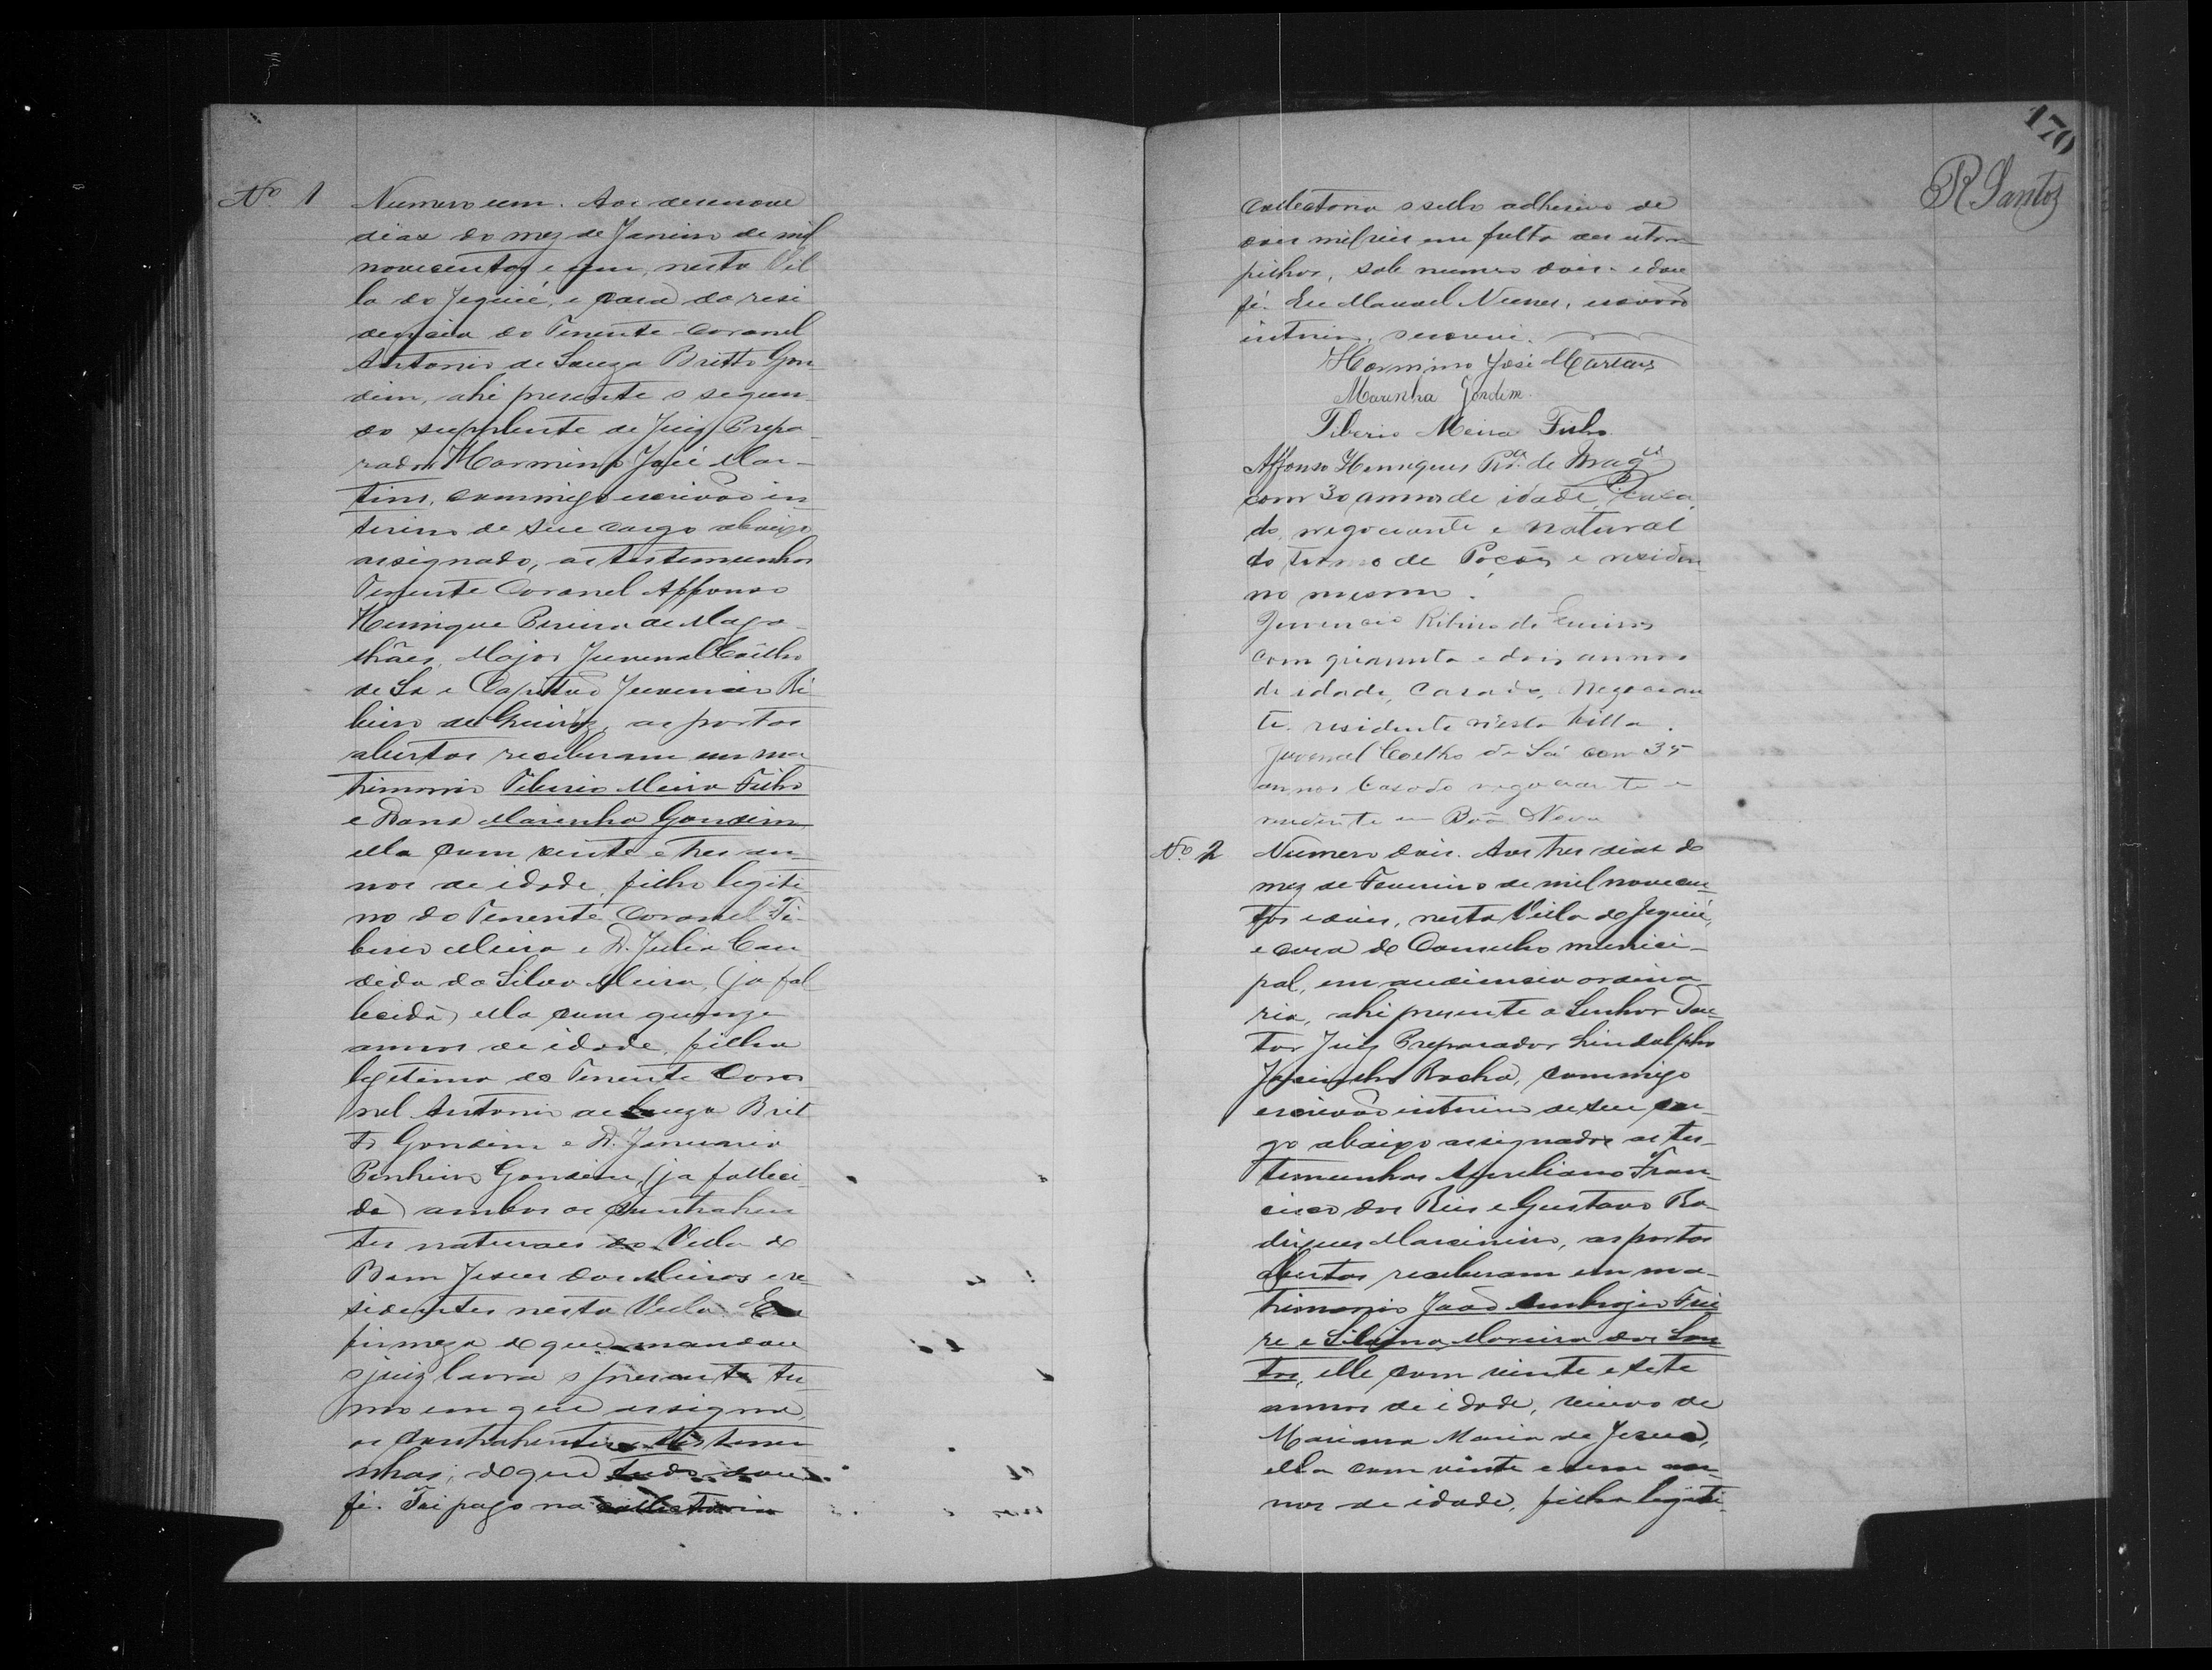 Nº 1
Numero um. Aos desenove
dias do mez de Janeiro de mil
novecentos e um, nesta Vil
la do Jequié, e casa da resi
dencia do Tenente Coronel
Antonio de Souza Britto Gon
dim, ahi presente o segun
do supplente de Juiz Prepa
rador Hormino José Mar-
tins, commigo escrivão in
terino de seu cargo abaixo
assignado, as testemunhas
Tenente Coronel Affonso
Henrique Pereira de Maga
lhães, Major Juvenal Coêlho
de Sa e Capitão Juvencio Ri
beiro de Queiroz, as portas
abertas receberam em ma
trimonio Tiberio Meira Filho
e Dona Marinha Gondim
ella com vinte e tres an-
nos de idade, filho legiti
mo do Tenente Coronel Ti-
berio Meira e D. Julia Can
dida da Silva Meira, (ja fal
lecida) ella com quinze
annos de idade, filha
legitima do Tenente Coro
nel Antonio de Souza Brit
to Gondim e D. Januaria
Pinheiro Gondim, (ja falleci
da) ambos os contrahen
tes naturaes da Villa de
Bom Jesus dos Meiras e re-
sidentes nesta Villa. Em
firmeza de que mandou
o juiz lavra o presente ter-
mo em que assigna,
os contrahentes e testemu
nhas; de que tudo dou
fé. Foi pago na collectoria
170
R. Santos
collectoria o sello adhesivo de
dois mil reis em falta de estam
pilhas, sob numero dois e dou
fé. Eu Manoel Nunes, escrivão
interino, escrevi.
Hormino José Martins
Marinha Gondim.
Tiberio Meira Filho
Affonso Henriques Prª. de Magªs
com 30 annos de idade, casa
do, negociante e natural
do termo de Poções e residen
no mesmo.
Juvencio Ribeiro de Queiros
com quarenta e dois annos
de idade, casado, Negocian
te residente nésta Villa.
Juvenal Coelho de Sá com 35
annos Casado negociante e
residente em Bôa Nova
Nº 2
Numero dois. Aos tres dias do
mez de Fevereiro de mil novecen
tos e dois, nesta Villa de Jequié,
e casa do Conselho munici-
pal, em audiencia ordina
ria, ahi presente o Senhor Dou
tor Juiz Preparador Lindolpho
Jacintho Rocha, commigo
escrivão interino de seu car
go abaixo assignados as tes-
temunhas Aureliano Fran-
cisco dos Reis e Gustavo Ro-
drigues Marcinino, as portas
abertas receberam em ma-
trimonio João Ambrozio Frei
re e Silvina Moreira dos San
tos, elle com vinte e sete
annos de idade, viuvo de
Mariana Maria de Jesus,
ella com vinte e um an-
nos de idade, filha legiti-